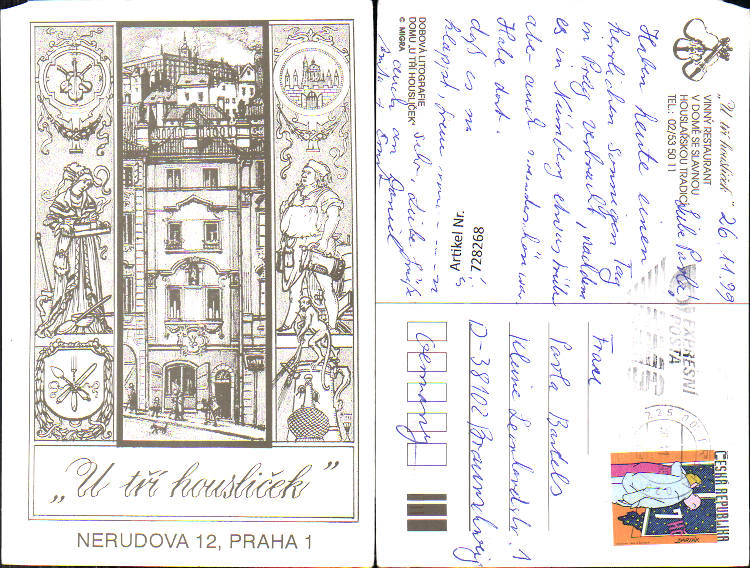 „U tří housliček”
NERUDOVA 12, PRAHA 1
„U tří housliček”
VINNÝ RESTAURANT
V DOMĚ SE SLAVNOU
HOUSLAŘSKOU TRADICÍ
TEL.: 02/53 50 11
DOBOVÁ LITOGRAFIE
DOMU „U TŘÍ HOUSLIČEK"
© MIGRA
26.11.99
Haben heute einen
herrlichen sonnigen Tag
in Prag verbracht, nachdem
es in Nürnberg etwas trüb
aber auch wunderschön war.
Habe dort
daß es
klappt, freue
sehr. Liebe Grüße
auch an Daniel
Artikel Nr.
728268
EXPRESNÍ
POŠTA
225 00
ČESKÁ REPUBLIKA
7 Kč
BARTÁK
Frau
Paula Bartels
Kleine Leonhardstr. 1
D-38102 Braunschweig
Germany